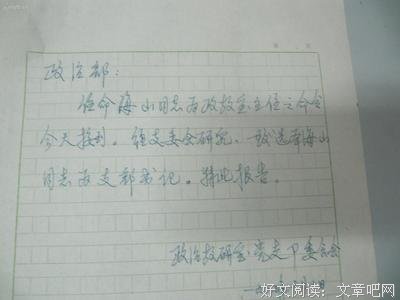 政治部：
任命海山同志为政教室主任之命令
今天接到。经支委会研究，一致选李海山
同志为支部书记。特此报告。
政治教研室党支部委员会
好文阅读：文章吧网